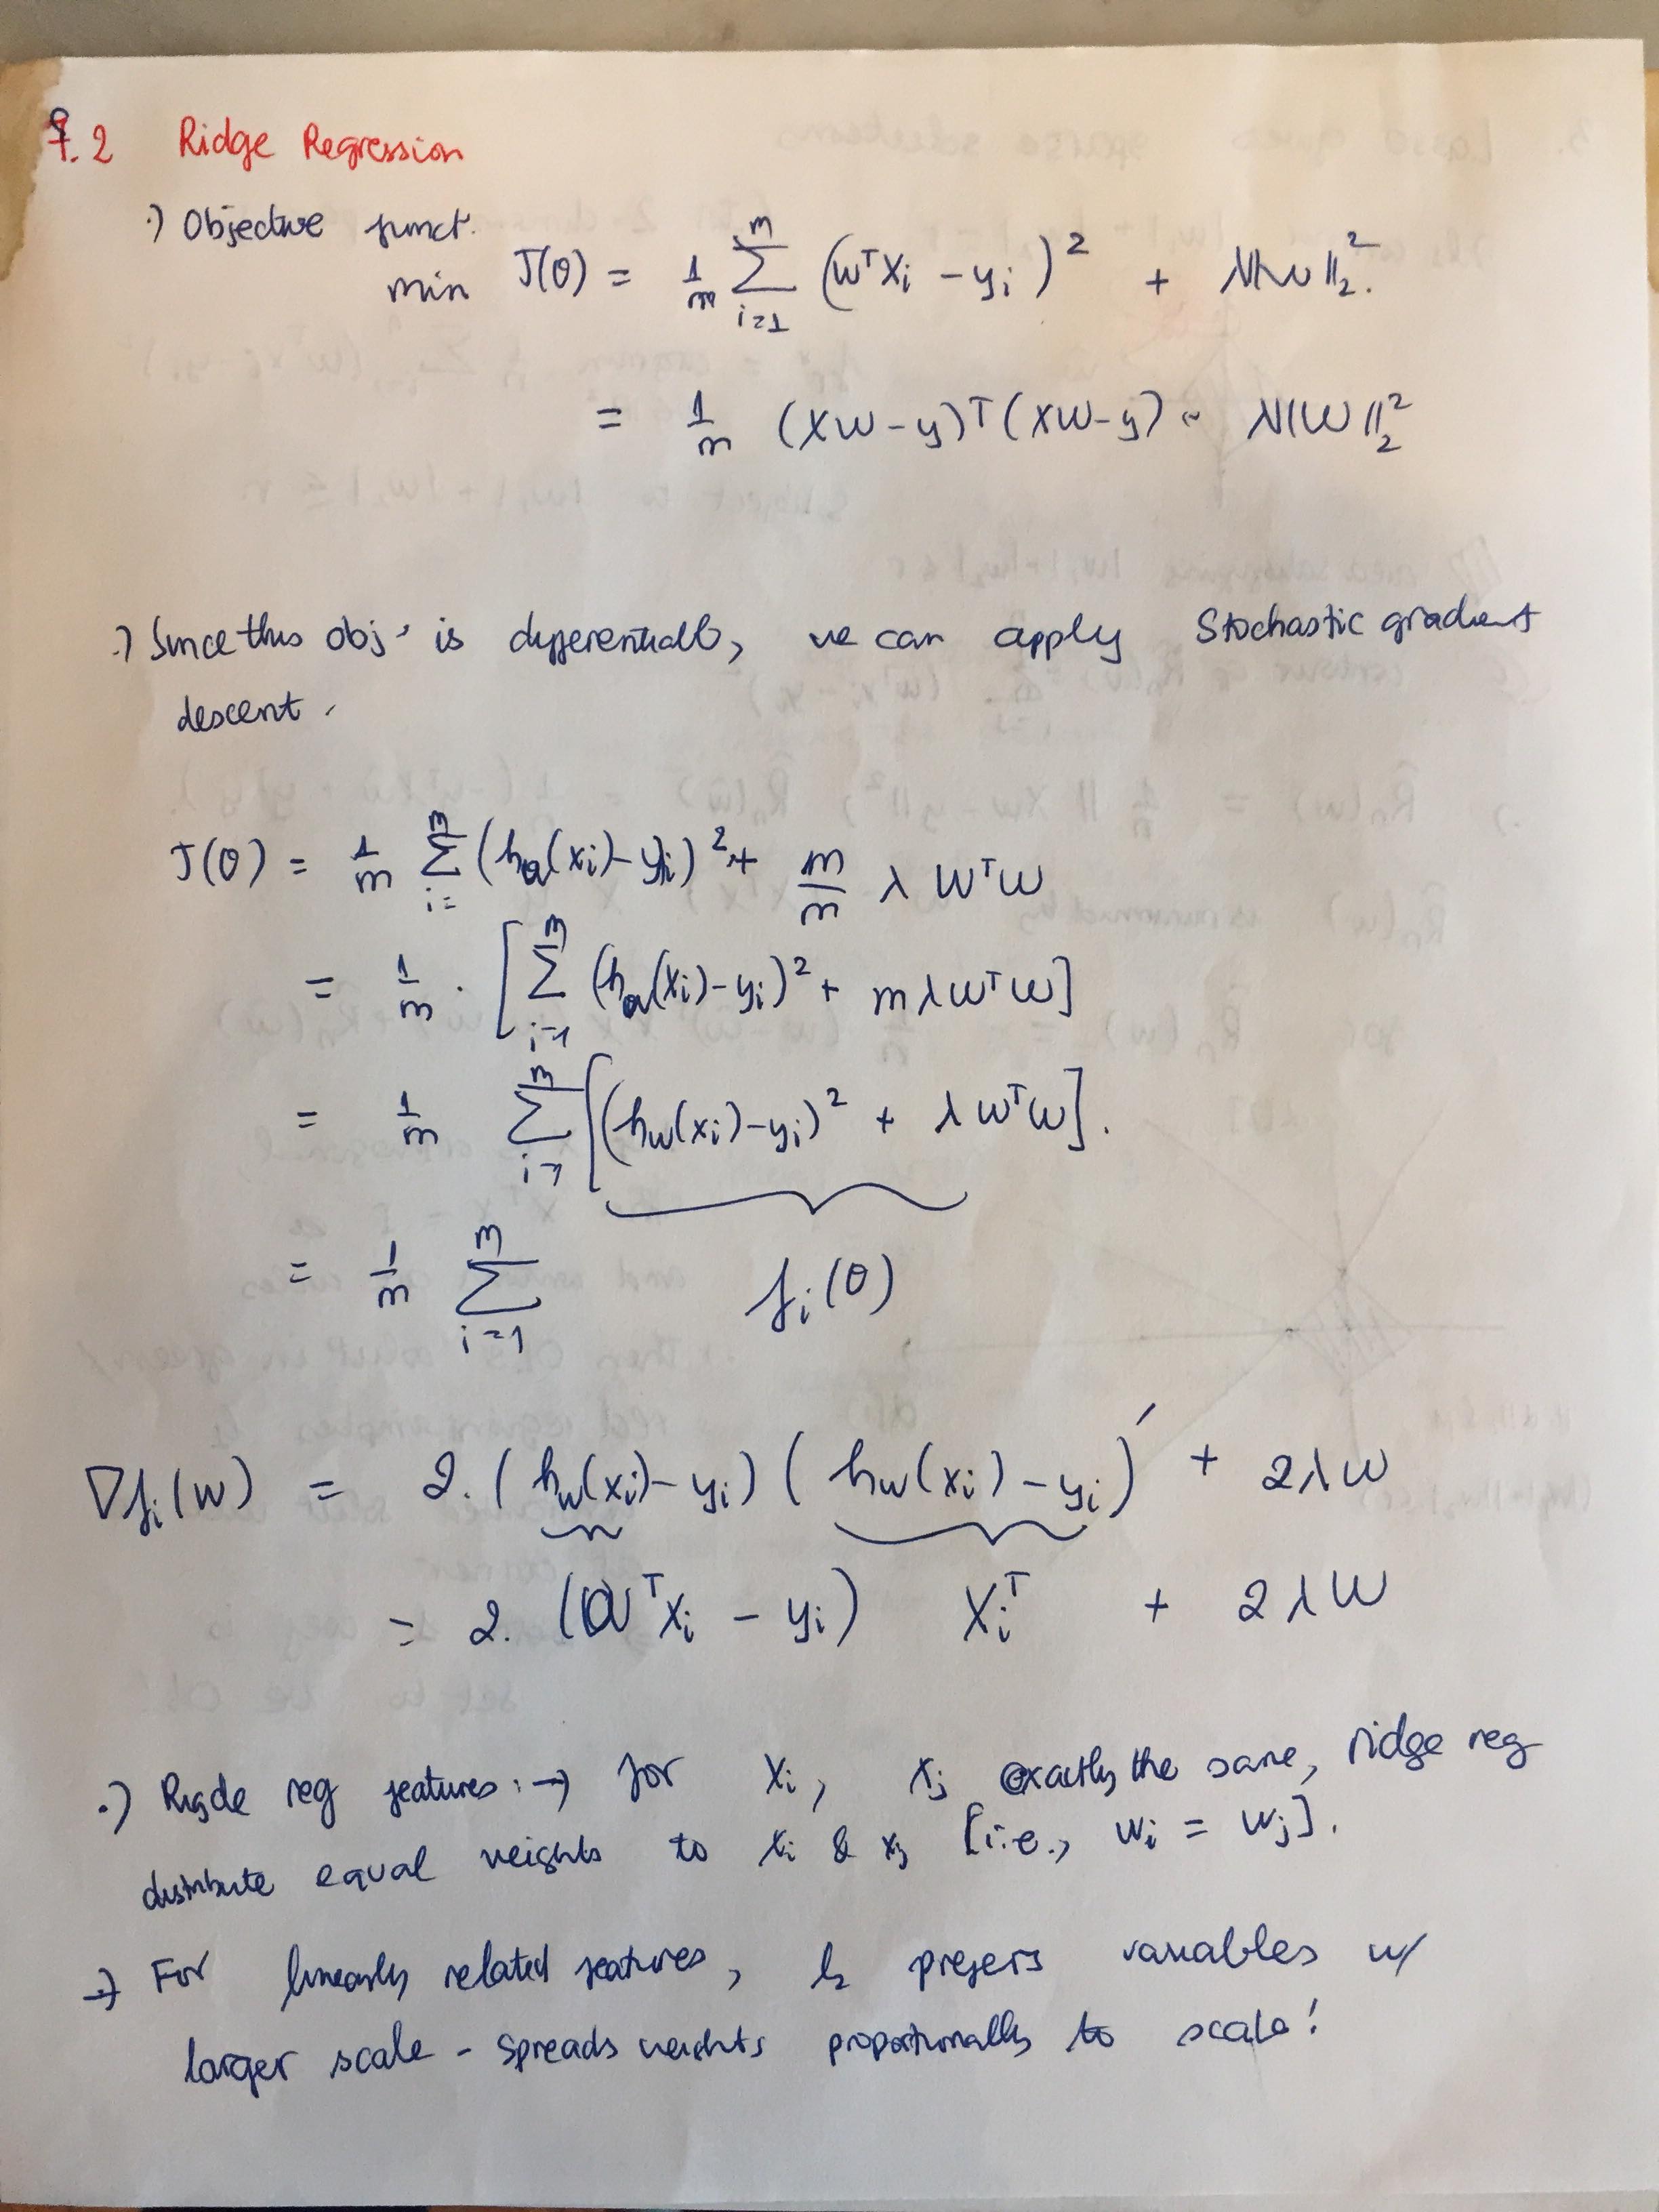 9.2 Ridge Regression
·) Objective funct.
min J(θ) = 1/m ∑_{i=1}^{m} (wᵀxᵢ - yᵢ)² + λ||w||₂².
= 1/m (Xw - y)ᵀ(Xw - y) - λ||w||₂²
·) Since this obj. is differentiall, we can apply Stochastic gradient
descent.
J(θ) = 1/m ∑_{i=}^{m} (h_θ(xᵢ) - yᵢ)² + m/m λ wᵀw
= 1/m · [∑_{i=1}^{m} (h_θ(xᵢ) - yᵢ)² + mλwᵀw]
= 1/m ∑_{i=1}^{m} [(h_w(xᵢ) - yᵢ)² + λwᵀw].
= 1/m ∑_{i=1}^{m} fᵢ(θ)
∇fᵢ(w) = 2. (h_w(xᵢ) - yᵢ) (h_w(xᵢ) - yᵢ)′ + 2λw
= 2. (wᵀxᵢ - yᵢ) xᵢᵀ + 2λw
·) Rigde reg features: → for xᵢ, xⱼ exactly the same, ridge reg
distribute equal weights to xᵢ & xⱼ [i.e., wᵢ = wⱼ].
→ For linearly related features, l₂ prefers variables w/
larger scale - spreads weights proportionally to scale!